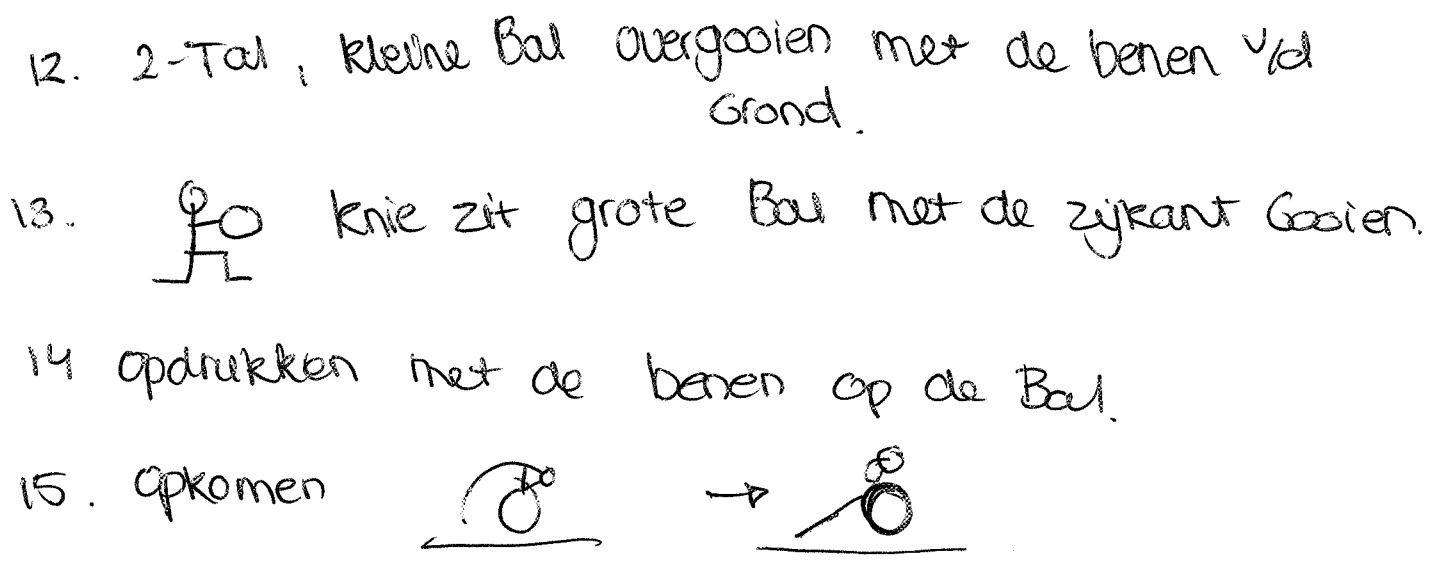 12. 2-Tal, kleine Bal overgooien met de benen v/d
Grond.
13. knie zit grote Bal met de zijkant Gooien.
14 opdrukken met de benen op de Bal.
15. opkomen